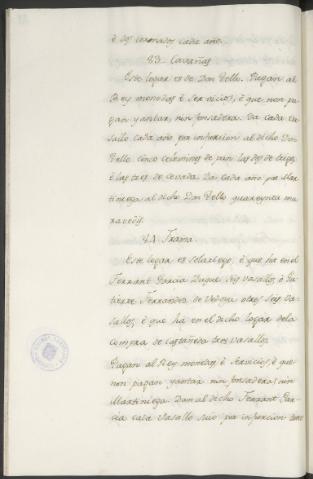 é dos coronados cada año.
83. Cavañas
Este logar es de Don Tello. Pagan al
Rey monedas é servicios, é que non pa
gan yantar, nin fonsadera. Da cada va
sallo cada año por infurcion al dicho Don
Tello cinco celemines de pan los dos de trigo,
é las tres de cevada. Dan cada año por Mar
tiniega al dicho Don Tello quareynta ma
ravedís.
84. Frama
Este logar es solariego, é que ha en el
Ferrant Garcia Duque seys vasallos, é Gu
tierre Ferrandez de otros seys va
sallos, é que há en el dicho logar dela
compra de Castañeda tres vasallos.
Pagan al Rey monedas, é servicios, é que
non pagan yantar nin fonsadera, nin
Martiniega. Dan al dicho Ferrant Gar
cia cada vasallo suio por infurcion